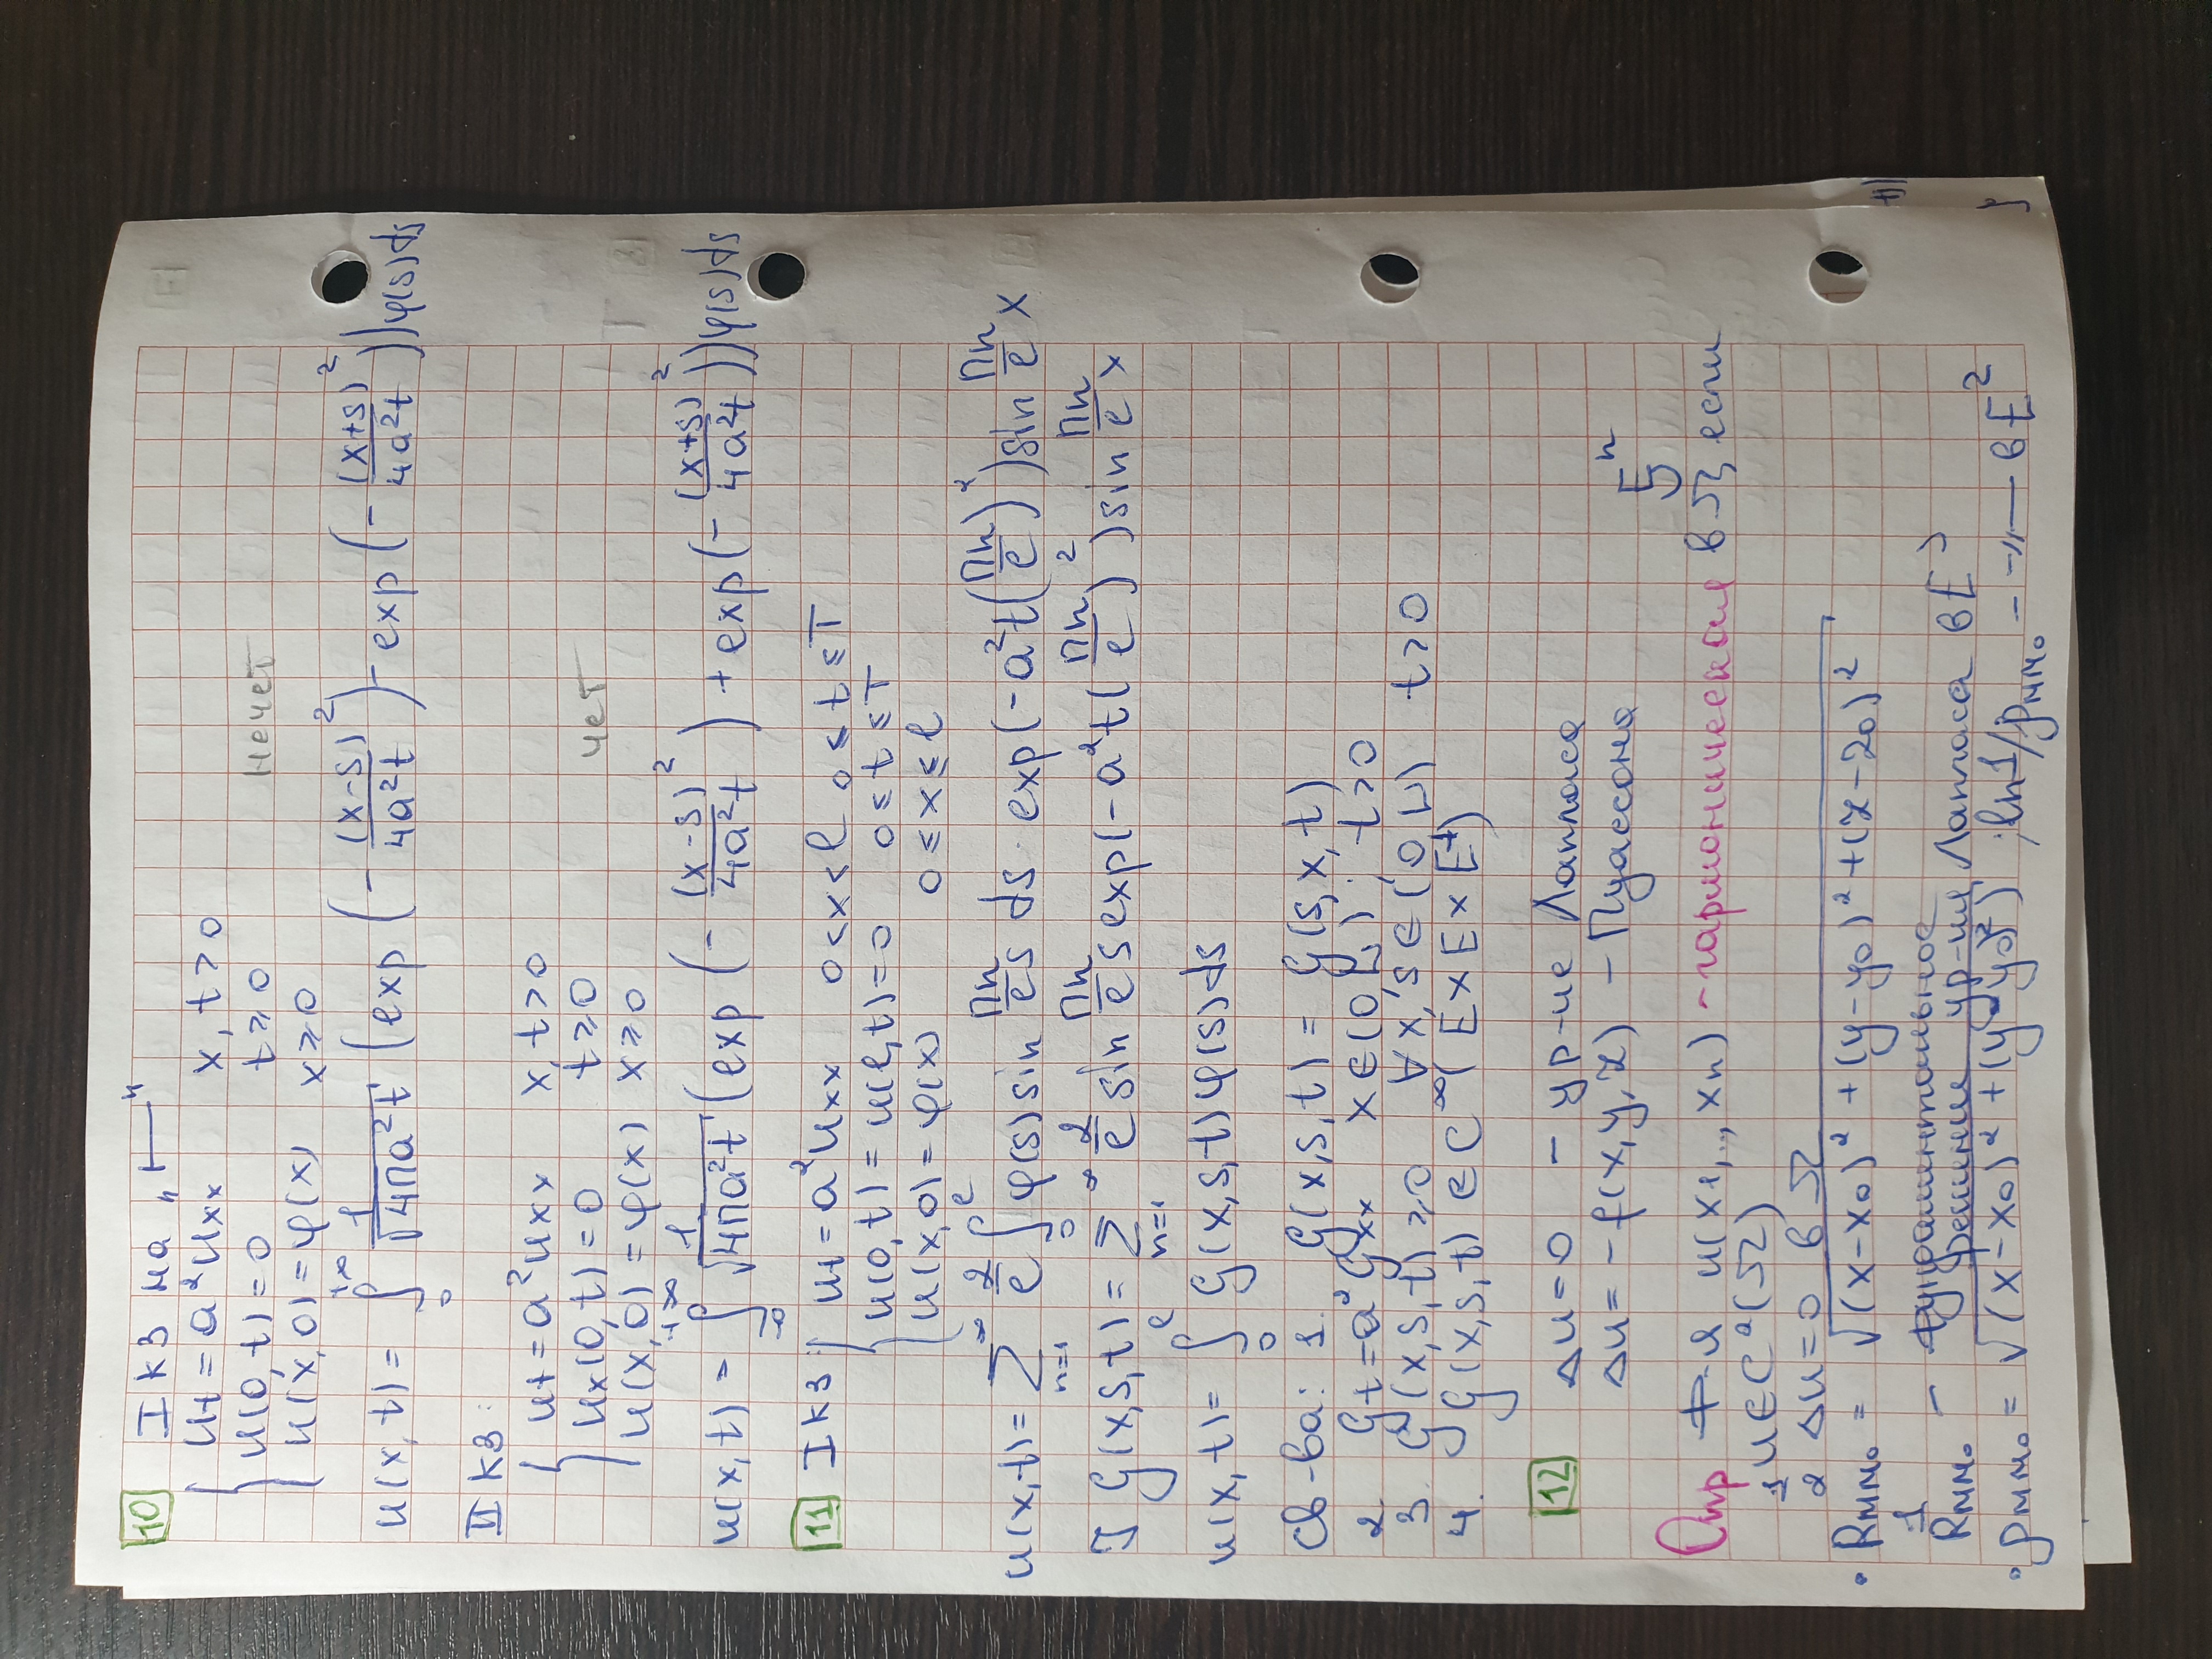 10 I кз на "⊢—"
{ ut = a² uxx x, t > 0
u(0, t) = 0 t ⩾ 0 нечет
u(x, 0) = φ(x) x ⩾ 0
u(x, t) = ∫₀^{+∞} 1/√(4πa²t) (exp(-(x-s)²/(4a²t)) - exp(-(x+s)²/(4a²t))) φ(s) ds
II кз:
{ ut = a² uxx x, t > 0
ux(0, t) = 0 t ⩾ 0 чет
u(x, 0) = φ(x) x ⩾ 0
u(x, t) = ∫₀^{+∞} 1/√(4πa²t) (exp(-(x-s)²/(4a²t)) + exp(-(x+s)²/(4a²t))) φ(s) ds
11 I кз { ut = a² uxx 0 < x < l 0 < t ≤ T
u(0, t) = u(l, t) = 0 0 ≤ t ≤ T
u(x, 0) = φ(x) 0 ≤ x ≤ l
u(x, t) = Σ_{n=1}^∞ 2/l ∫₀^l φ(s) sin πn/l s ds · exp(-a²t(πn/l)²) sin πn/l x
G(x, s, t) = Σ_{n=1}^∞ 2/l sin πn/l s exp(-a²t(πn/l)²) sin πn/l x
u(x, t) = ∫₀^l G(x, s, t) φ(s) ds
Св-ва: 1. G(x, s, t) = G(s, x, t)
2 Gt = a² Gxx x ∈ (0, L), t > 0
3. G(x, s, t) ⩾ 0 ∀ x, s ∈ (0, L) t > 0
4. G(x, s, t) ∈ C^∞(E × E × E⁺)
12 Δu = 0 - ур-ие Лапласа
Δu = - f(x, y, z) - Пуассона
Опр ф-я u(x1, ..., xn) - гармоническая в Ω если
1 u ∈ C²(Ω)
2 Δu = 0 в Ω
• R_{MM₀} = √((x-x₀)² + (y-y₀)² + (z-z₀)²)
1/R_{MM₀} - фундаментальное решение ур-ия Лапласа в E³
• ρ_{MM₀} = √((x-x₀)² + (y-y₀)²), ln 1/ρ_{MM₀} - —"— в E²